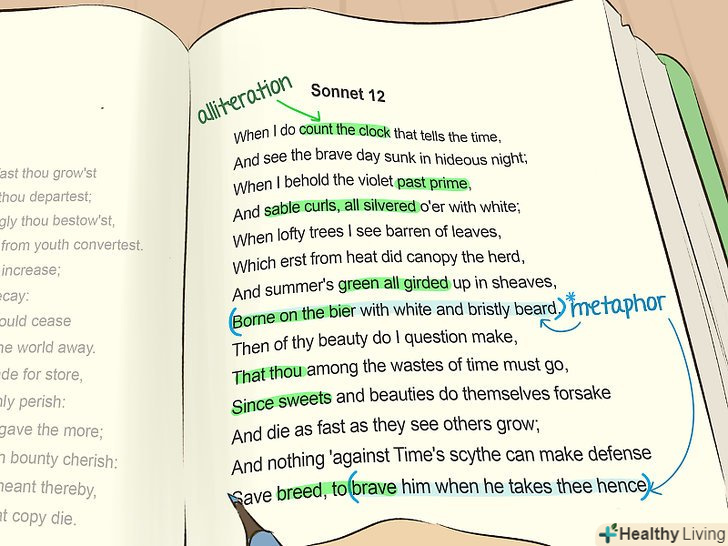 ast thou grow'st
thou departest;
gly thou bestow'st,
from youth convertest.
increase;
ecay:
ould cease
he world away.
de for store,
ly perish:
gave the more;
h bounty cherish:
meant thereby,
t copy die.
alliteration
Sonnet 12
When I do count the clock that tells the time,
And see the brave day sunk in hideous night;
When I behold the violet past prime,
And sable curls, all silvered o'er with white;
When lofty trees I see barren of leaves,
Which erst from heat did canopy the herd,
And summer's green all girded up in sheaves,
(Borne on the bier with white and bristly beard,)*metaphor
Then of thy beauty do I question make,
That thou among the wastes of time must go,
Since sweets and beauties do themselves forsake
And die as fast as they see others grow;
And nothing 'against Time's scythe can make defense
Save breed, to (brave him when he takes thee hence)
Healthy Living